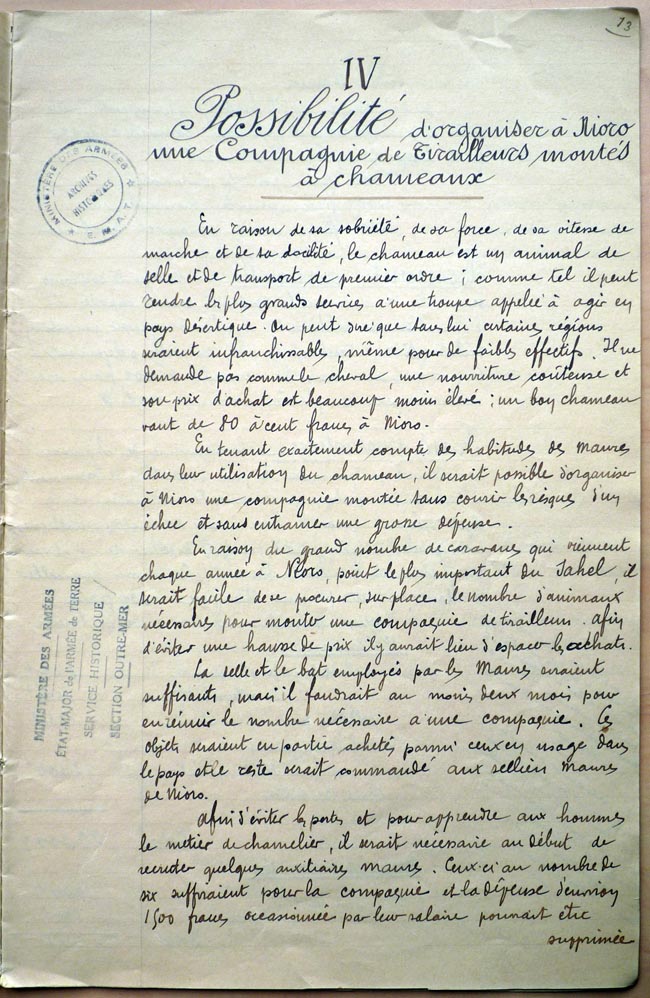 13
IV
Possibilité d'organiser à Nioro
une Compagnie de Tirailleurs montés
à chameaux
MINISTÈRE DES ARMÉES
ARCHIVES
HISTORIQUES
★ E.M.A.T. ★
En raison de sa sobriété, de sa force, de sa vitesse de
marche et de sa docilité, le chameau est un animal de
selle et de transport de premier ordre ; comme tel il peut
rendre les plus grands services à une troupe appelée à agir en
pays désertique. On peut dire que sans lui certaines régions
seraient infranchissables, même pour de faibles effectifs. Il ne
demande pas comme le cheval, une nourriture coûteuse et
son prix d'achat est beaucoup moins élevé ; un bon chameau
vaut de 80 à cent francs à Nioro.
En tenant exactement compte des habitudes des Maures
dans leur utilisation du chameau, il serait possible d'organiser
à Nioro une compagnie montée sans courir les risques d'un
échec et sans entraîner une grosse dépense.
En raison du grand nombre de caravanes qui viennent
chaque année à Nioro, point le plus important du Sahel, il
serait facile de se procurer, sur place, le nombre d'animaux
nécessaires pour monter une compagnie de tirailleurs. Afin
d'éviter une hausse de prix il y aurait lieu d'espacer les achats.
La selle et le bât employés par les Maures seraient
suffisants, mais il faudrait au moins deux mois pour
en réunir le nombre nécessaire à une compagnie. Ces
objets seraient en partie achetés parmi ceux en usage dans
le pays et le reste serait commandé aux selliers Maures
de Nioro.
Afin d'éviter les pertes et pour apprendre aux hommes
le métier de chamelier, il serait nécessaire au début de
recruter quelques auxiliaires maures. Ceux-ci au nombre de
six suffiraient pour la compagnie et la dépense d'environ
1500 francs occasionnée par leur salaire pourrait être
supprimée
MINISTÈRE DES ARMÉES
ÉTAT-MAJOR de l'ARMÉE de TERRE
SERVICE HISTORIQUE
SECTION OUTRE-MER